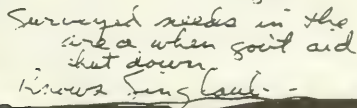 Surveyed needs in the
area when gov't aid
shut down.
Knows